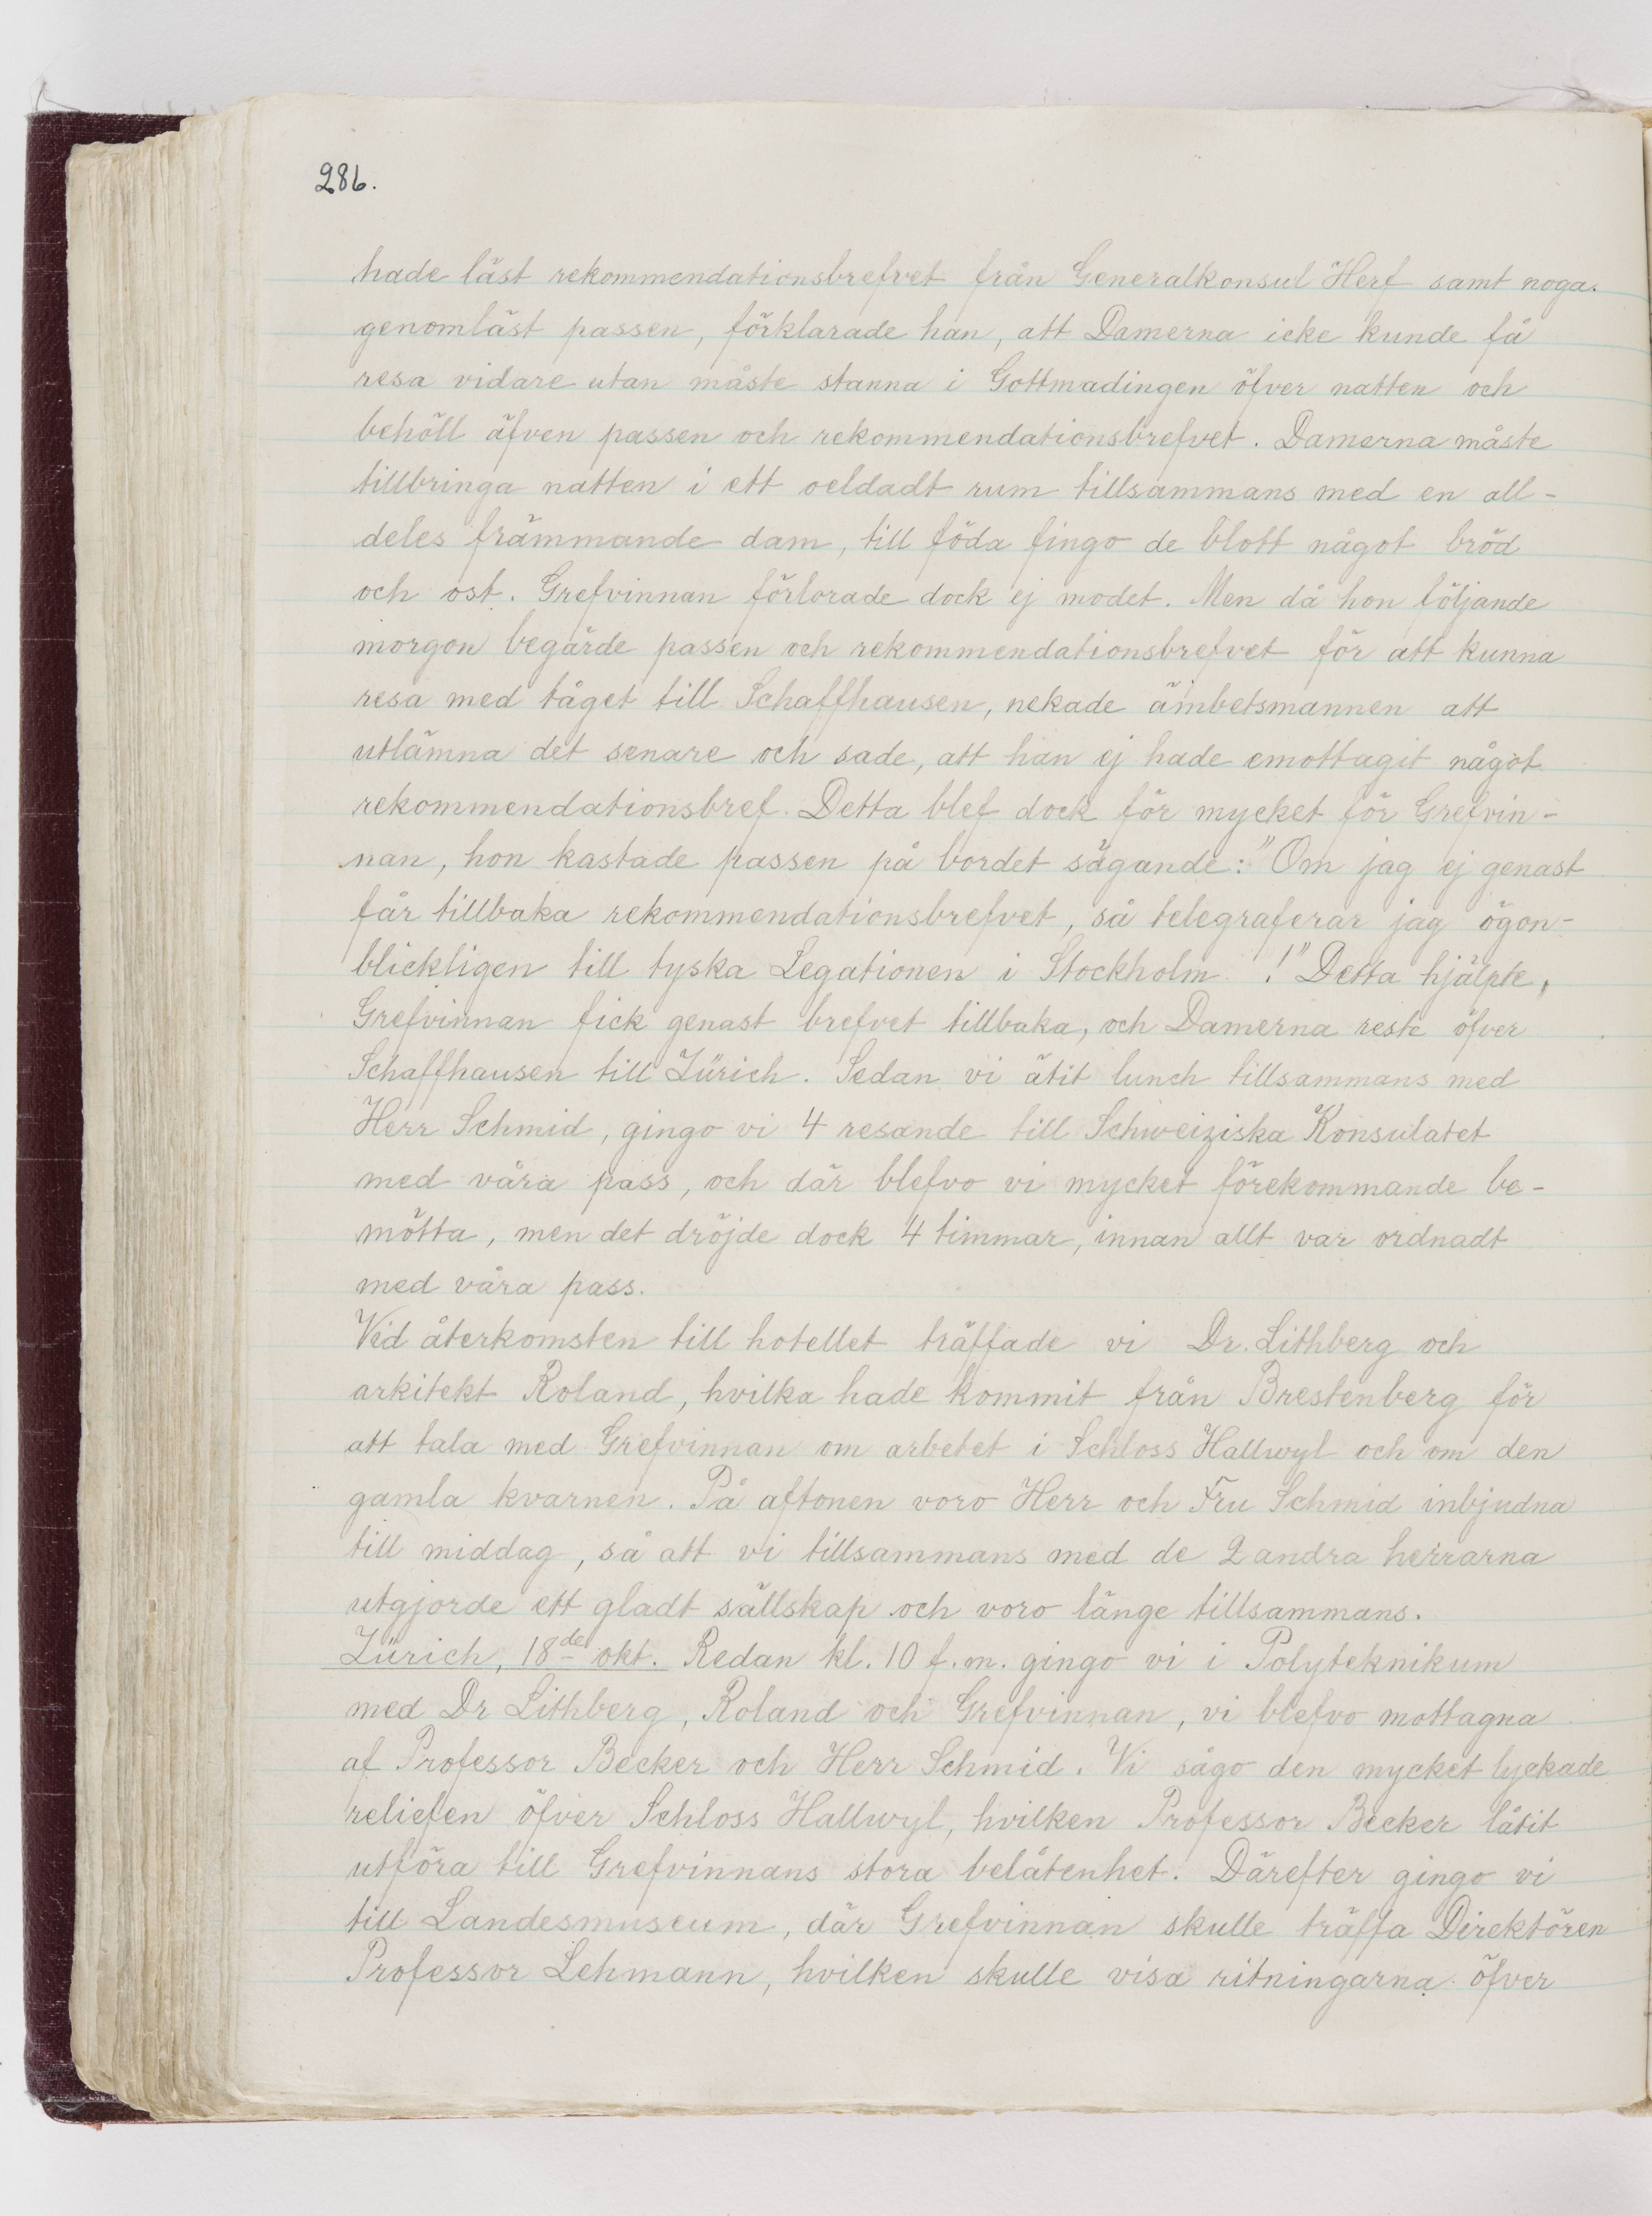 286.
hade läst rekommendationsbrefvet från Generalkonsul Herf samt noga
genomläst passen, förklarade han, att Damerna icke kunde få
resa vidare utan måste stanna i Gottmadingen öfver natten och
behöll äfven passen och rekommendationsbrefvet. Damerna måste
tillbringa natten i ett oeldadt rum tillsammans med en all-
deles främmande dam, till föda fingo de blott något bröd
och ost. Grefvinnan förlorade dock ej modet. Men då hon följande
morgon begärde passen och rekommendationsbrefvet för att kunna
resa med tåget till Schaffhausen, nekade ämbetsmannen att
utlämna det senare och sade, att han ej hade emottagit något
rekommendationsbref. Detta blef dock för mycket för Grefvin-
nan, hon kastade passen på bordet sägande: "Om jag ej genast
får tillbaka rekommendationsbrefvet, så telegraferar jag ögon-
blickligen till tyska Legationen i Stockholm !" Detta hjälpte,
Grefvinnan fick genast brefvet tillbaka, och Damerna reste öfver
Schaffhausen till Zürich. Sedan vi ätit lunch tillsammans med
Herr Schmid, gingo vi 4 resande till Schweiziska Konsulatet
med våra pass, och där blefvo vi mycket förekommande be-
mötta, men det dröjde dock 4 timmar, innan allt var ordnadt
med våra pass.
Vid återkomsten till hotellet träffade vi Dr. Lithberg och
arkitekt Roland, hvilka hade kommit från Brestenberg för
att tala med Grefvinnan om arbetet i Schloss Hallwyl och om den
gamla kvarnen. På aftonen voro Herr och Fru Schmid inbjudna
till middag, så att vi tillsammans med de 2 andra herrarna
utgjorde ett gladt sällskap och voro länge tillsammans.
Zürich, 18de okt. Redan kl. 10 f.m. gingo vi i Polyteknikum
med Dr Lithberg, Roland och Grefvinnan, vi blefvo mottagna
af Professor Becker och Herr Schmid. Vi sågo den mycket lyckade
reliefen öfver Schloss Hallwyl, hvilken Professor Becker låtit
utföra till Grefvinnans stora belåtenhet. Därefter gingo vi
till Landesmuseum, där Grefvinnan skulle träffa Direktören
Professor Lehmann, hvilken skulle visa ritningarna öfver